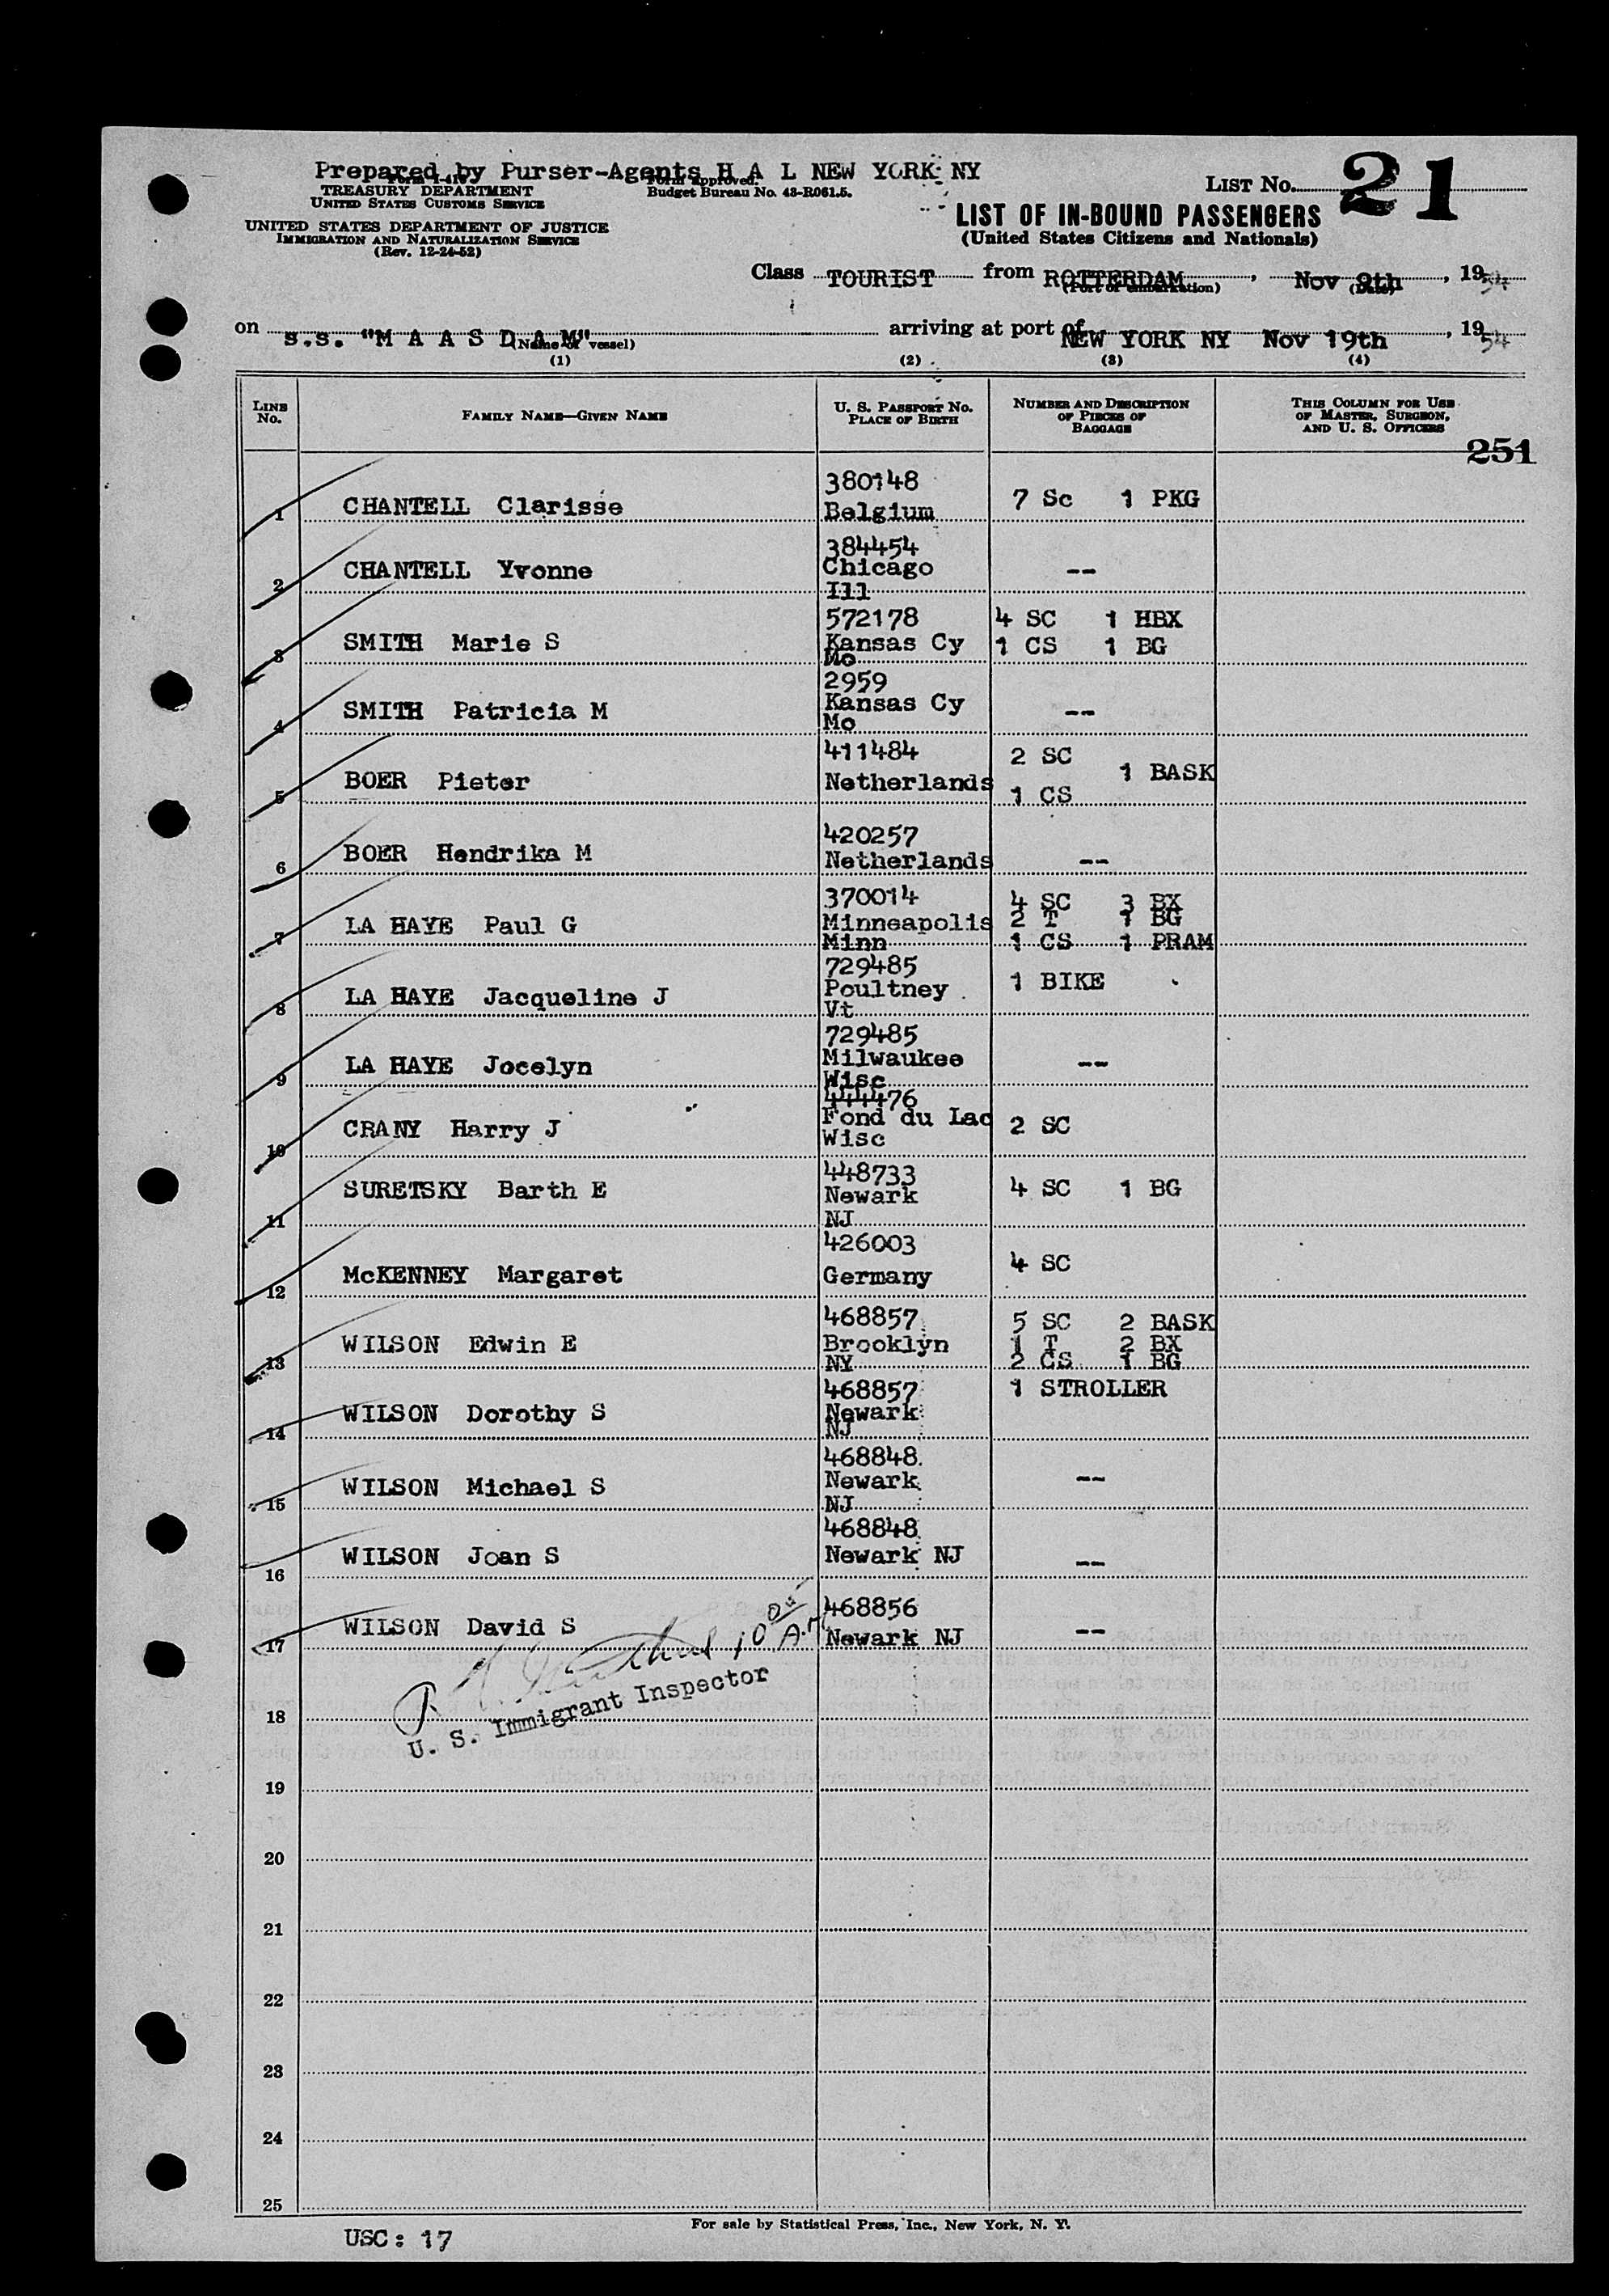 Prepared by Purser-Agents H A L NEW YORK NY
Form I-418
TREASURY DEPARTMENT
UNITED STATES CUSTOMS SERVICE
Form approved.
Budget Bureau No. 43-R061.5.
LIST NO. 21
UNITED STATES DEPARTMENT OF JUSTICE
IMMIGRATION AND NATURALIZATION SERVICE
(Rev. 12-24-52)
LIST OF IN-BOUND PASSENGERS
(United States Citizens and Nationals)
Class TOURIST from ROTTERDAM, Nov 9th, 1954
(Port of embarkation) (Date)
on s.s. "M A A S D A M" arriving at port of NEW YORK NY Nov 19th, 1954
(Name of vessel)
(1) (2) (3) (4)
LINE No. FAMILY NAME—GIVEN NAME U. S. PASSPORT NO. PLACE OF BIRTH NUMBER AND DESCRIPTION OF PIECES OF BAGGAGE THIS COLUMN FOR USE OF MASTER, SURGEON, AND U. S. OFFICERS
251
1 CHANTELL Clarisse 380148 Belgium 7 Sc 1 PKG
2 CHANTELL Yvonne 384454 Chicago Ill --
3 SMITH Marie S 572178 Kansas Cy Mo 4 SC 1 HBX 1 CS 1 BG
4 SMITH Patricia M 2959 Kansas Cy Mo --
5 BOER Pieter 411484 Netherlands 2 SC 1 BASK 1 CS
6 BOER Hendrika M 420257 Netherlands --
7 LA HAYE Paul G 370014 Minneapolis Minn 4 SC 3 BX 2 T 1 BG 1 CS 1 PRAM
8 LA HAYE Jacqueline J 729485 Poultney Vt 1 BIKE
9 LA HAYE Jocelyn 729485 Milwaukee Wisc --
10 CRANY Harry J 444476 Fond du Lac Wisc 2 SC
11 SURETSKY Barth E 448733 Newark NJ 4 SC 1 BG
12 McKENNEY Margaret 426003 Germany 4 SC
13 WILSON Edwin E 468857 Brooklyn NY 5 SC 2 BASK 1 T 2 BX 2 CS 1 BG
14 WILSON Dorothy S 468857 Newark NJ 1 STROLLER
15 WILSON Michael S 468848 Newark NJ --
16 WILSON Joan S 468848 Newark NJ --
17 WILSON David S 468856 Newark NJ --
10 00 A.M.
U. S. Immigrant Inspector
18
19
20
21
22
23
24
25
For sale by Statistical Press, Inc., New York, N. Y.
USC: 17